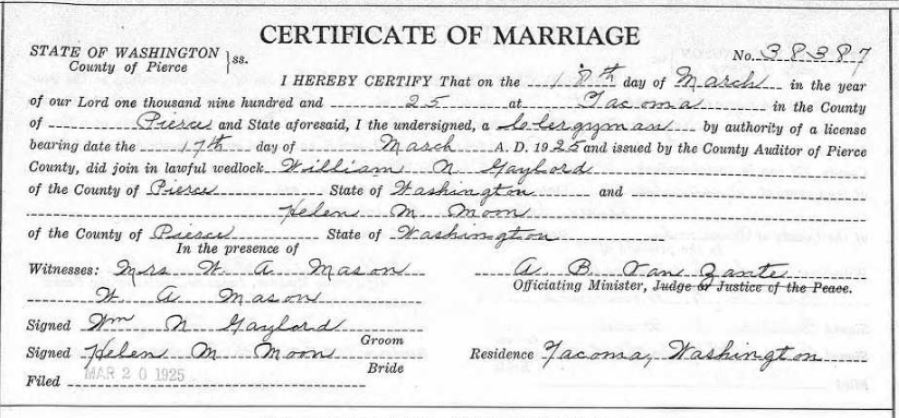 CERTIFICATE OF MARRIAGE
STATE OF WASHINGTON } ss.
County of Pierce
No. 38387
I HEREBY CERTIFY That on the 18th day of March in the year
of our Lord one thousand nine hundred and 25 at Tacoma in the County
of Pierce and State aforesaid, I the undersigned, a Clergyman by authority of a license
bearing date the 17th day of March A. D. 1925 and issued by the County Auditor of Pierce
County, did join in lawful wedlock William N Gaylord
of the County of Pierce State of Washington and
Helen M Moon
of the County of Pierce State of Washington
In the presence of
Witnesses: Mrs W. A. Mason
W. A. Mason
A. B. Van Zante
Officiating Minister, Judge or Justice of the Peace.
Signed Wm N Gaylord
Groom
Signed Helen M Moon
Bride
Residence Tacoma, Washington
Filed MAR 20 1925